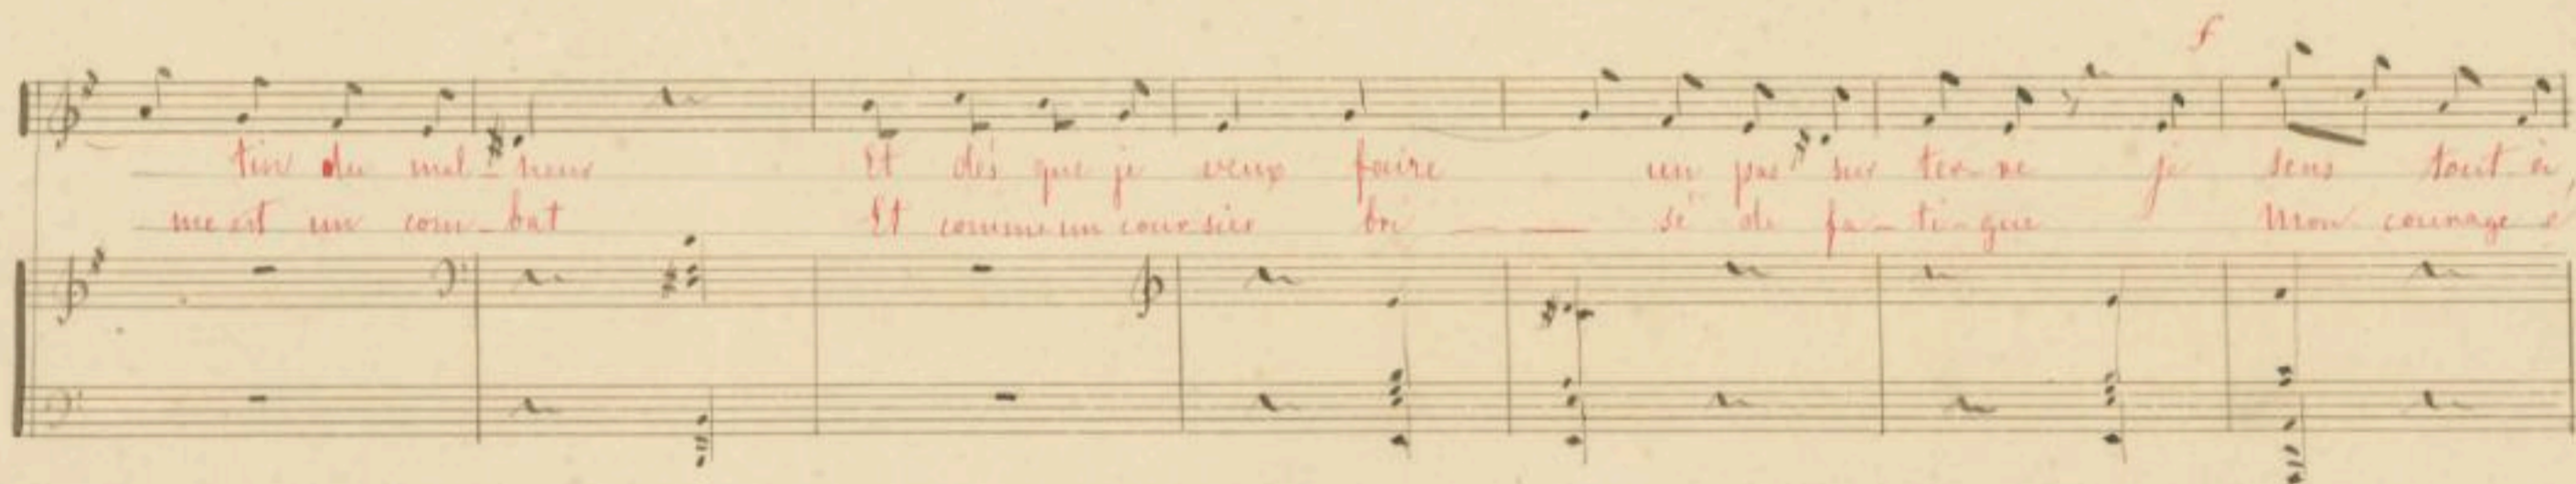 f
tin du mal - heur Et dès que je veux faire un pas sur ter - re je sens tout à
me est un com - bat Et comme un coursier bri - sé de fa - ti - gue Mon courage e